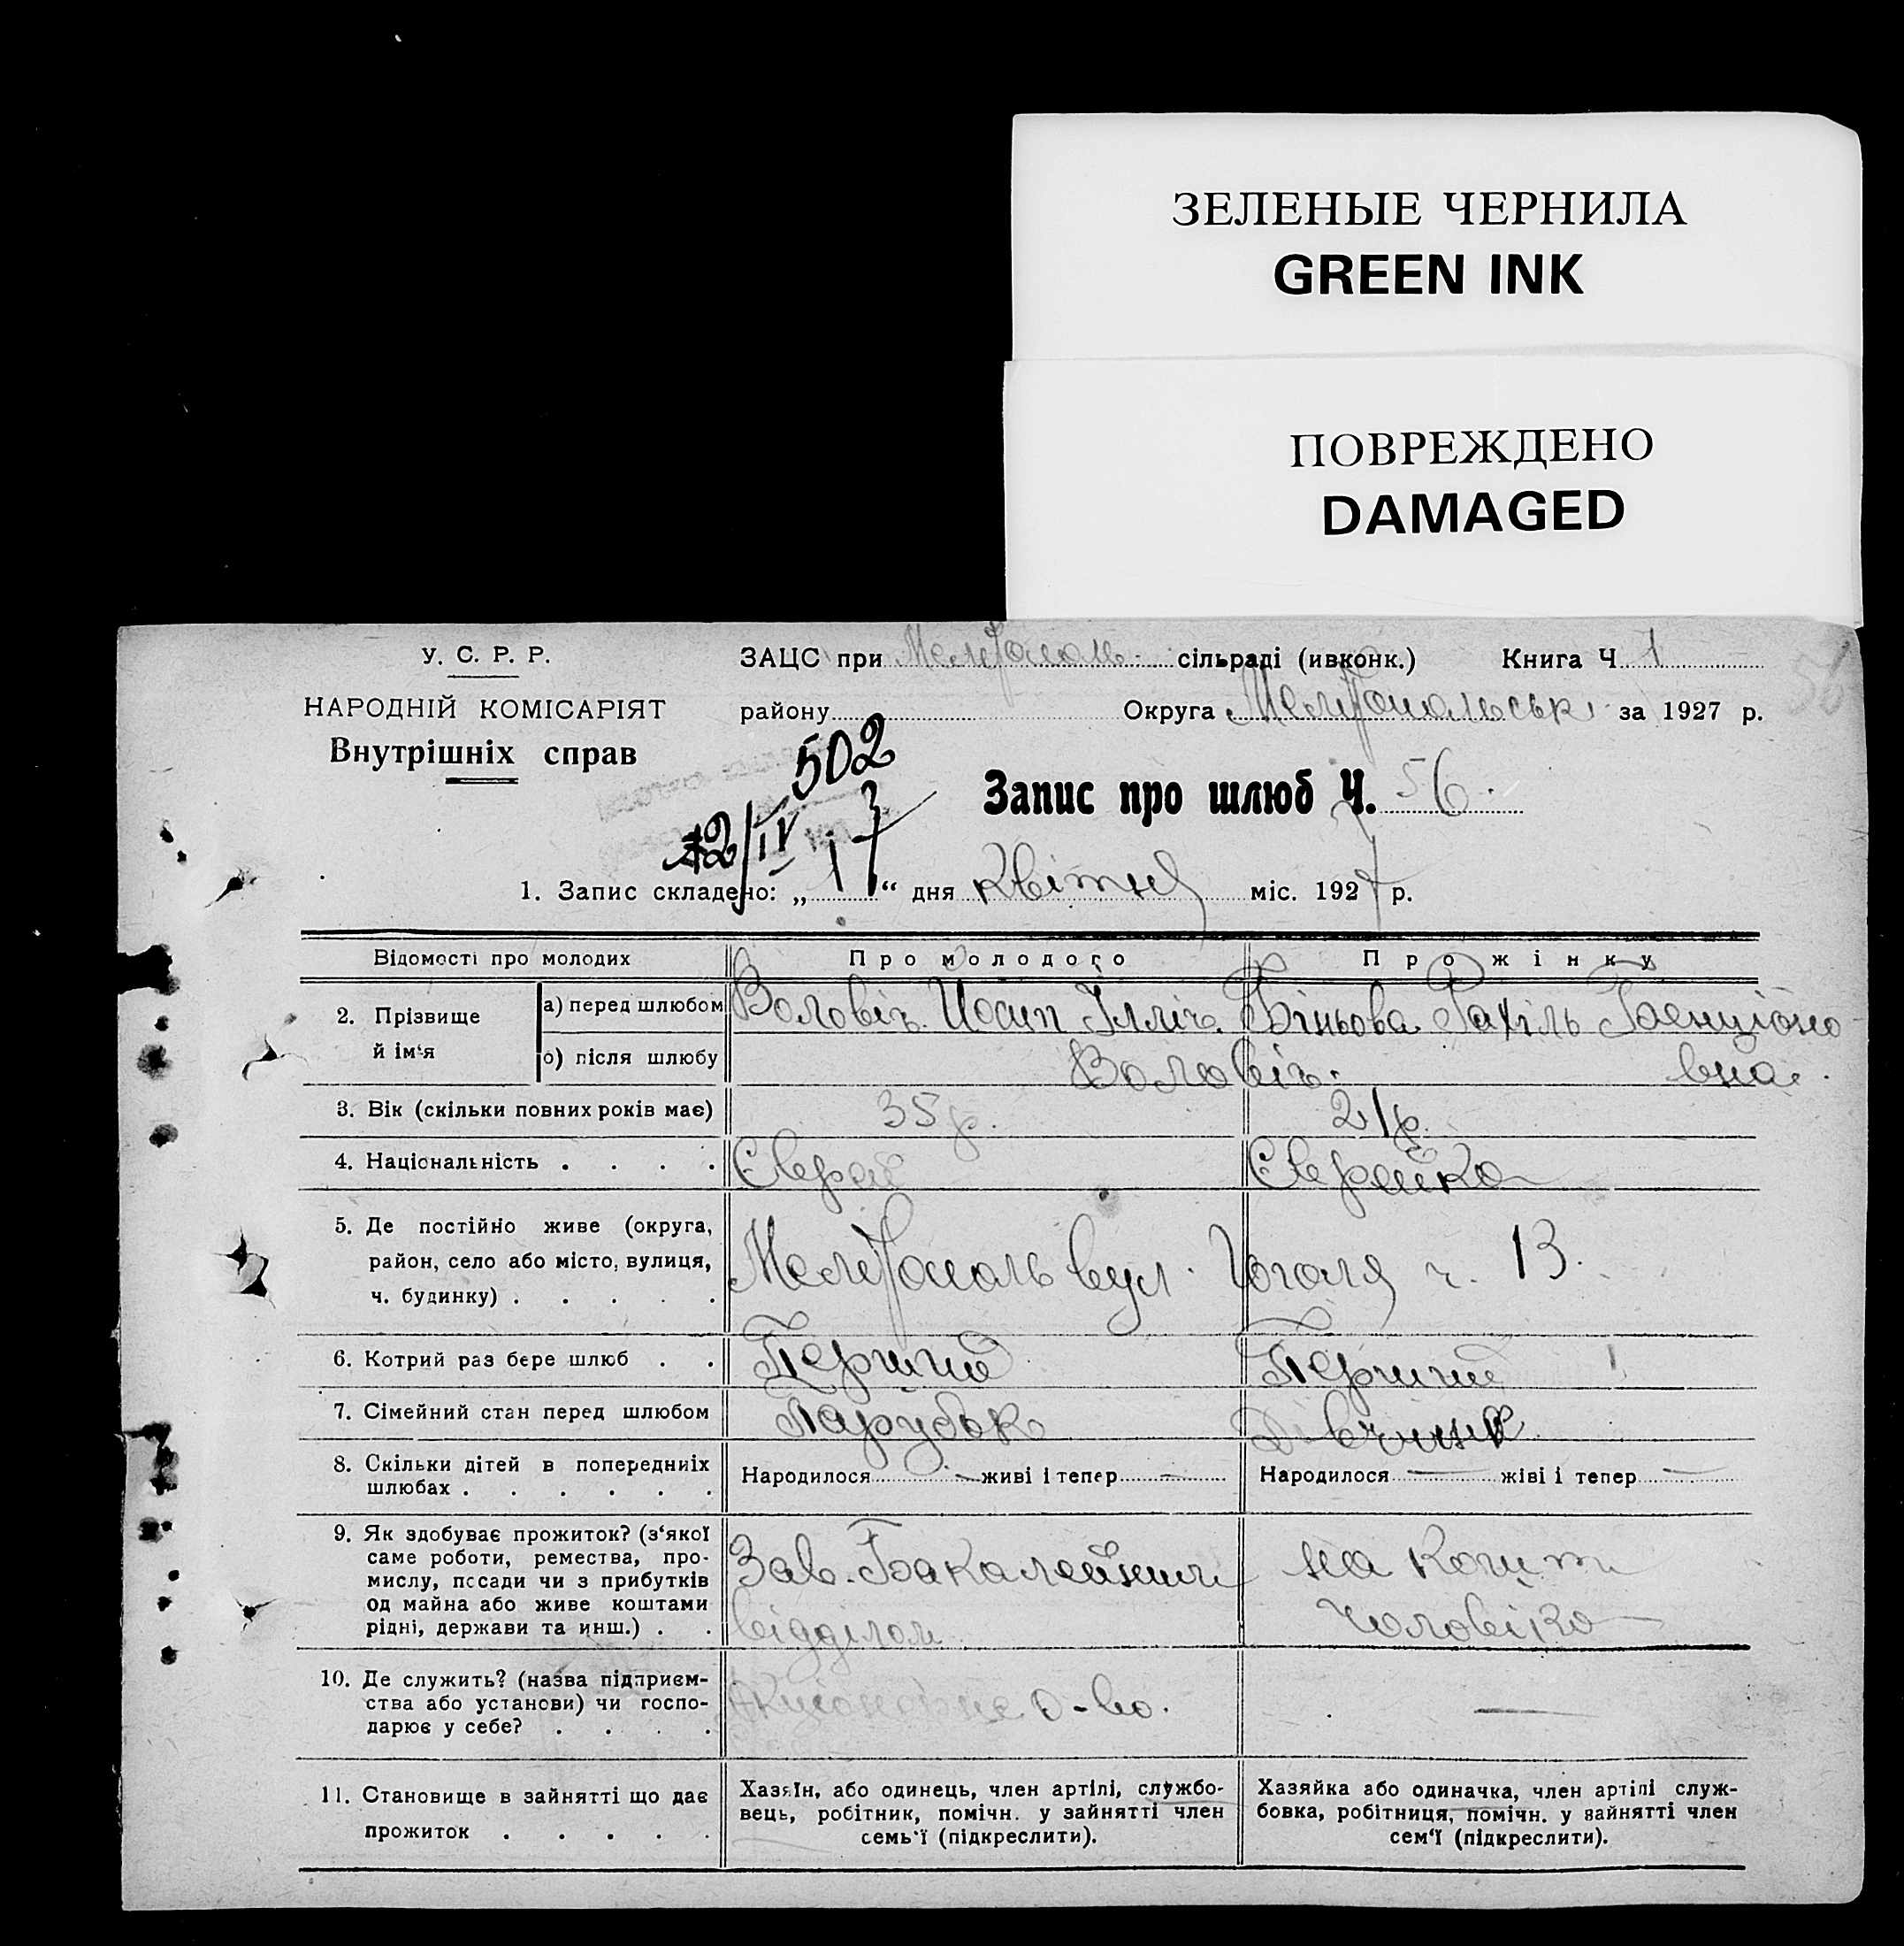 ЗЕЛЕНЫЕ ЧЕРНИЛА
GREEN INK
ПОВРЕЖДЕНО
DAMAGED
У. С. Р. Р.
НАРОДНІЙ КОМІСАРІЯТ
Внутрішніх справ
ЗАЦС при Мелітополь сільраді (ивконк.) Книга Ч. 1
56
району Округа Мелітопольськ за 1927 р.
502
12/IV
Запис про шлюб Ч. 56.
1. Запис складено: „17“ дня квітня міс. 1927 р.
Відомості про молодих Про молодого Про жінку
2. Прізвище й ім‘я
а) перед шлюбом Воловіч Йосип Ілліч. Бізньова Рахіль Бенціоно-
вна.
б) після шлюбу Воловіч.
3. Вік (скільки повних років має) 35 р. 21 р.
4. Національність . . . . Єврей Єврейка
5. Де постійно живе (округа,
район, село або місто, вулиця,
ч. будинку) . . . . .
Мелітополь вул. Гоголя ч. 13.
6. Котрий раз бере шлюб . . Перший Перший
7. Сімейний стан перед шлюбом Парубок Дівчина
8. Скільки дітей в попередниіх
шлюбах . . . . . .
Народилося — живі і тепер —
Народилося — жіві і тепер —
9. Як здобуває прожиток? (з‘якої
саме роботи, ремества, про-
мислу, посади чи з прибутків
од майна або живе коштами
рідні, держави та инш.) . .
Зав. Бакалейним
відділом
на кошти
чоловіка
10. Де служить? (назва підприєм-
ства або установи) чи госпо-
дарює у себе? . . . .
Акціонерне о-во.
—
11. Становище в зайнятті що дає
прожиток . . . . .
Хазяїн, або одинець, член артілі, службо-
вець, робітник, помічн. у зайнятті член
семь‘ї (підкреслити).
Хазяйка або одиначка, член артілі служ-
бовка, робітниця, помічн. у зайнятті член
сем‘ї (підкреслити).